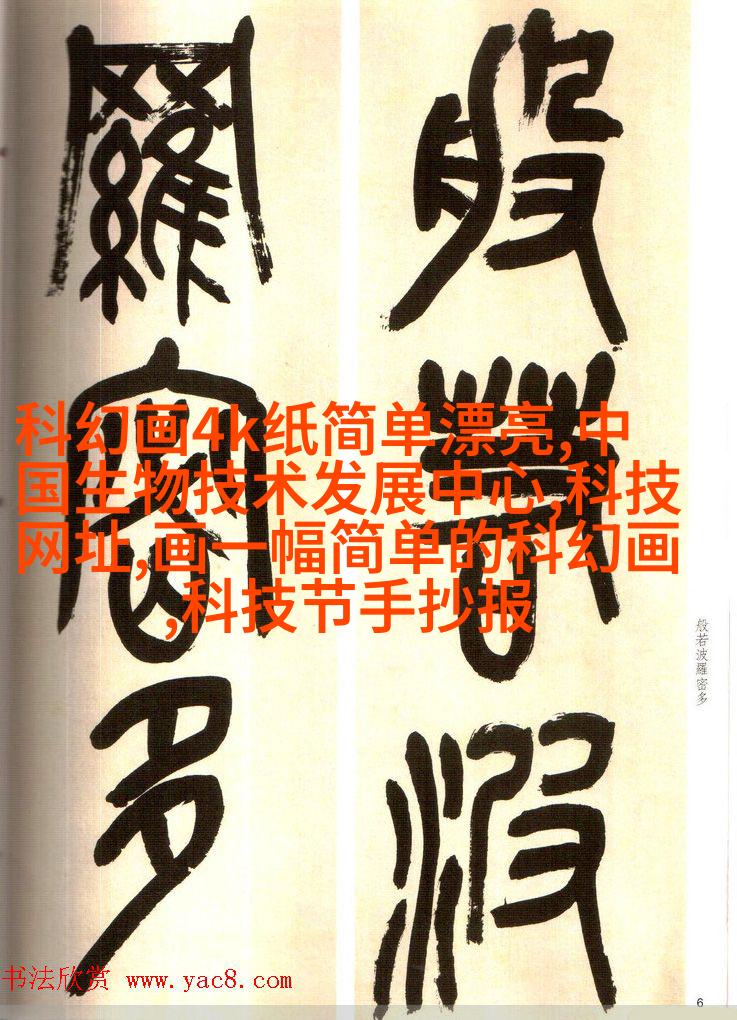 般若波
羅密多
科幻画4k纸简单漂亮,中
国生物技术发展中心,科技
网址,画一幅简单的科幻画
,科技节手抄报
般若波羅密多
书法欣赏 www.yac8.com
6